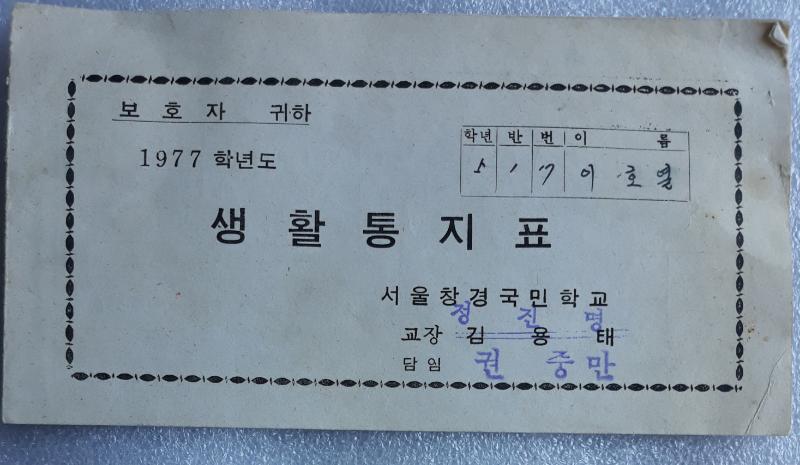 보호자 귀하
1977 학년도
학년 반 번 이 름
5 1 17 이호열
생활통지표
서울창경국민학교
정진명
교장 김용태
담임 권중만